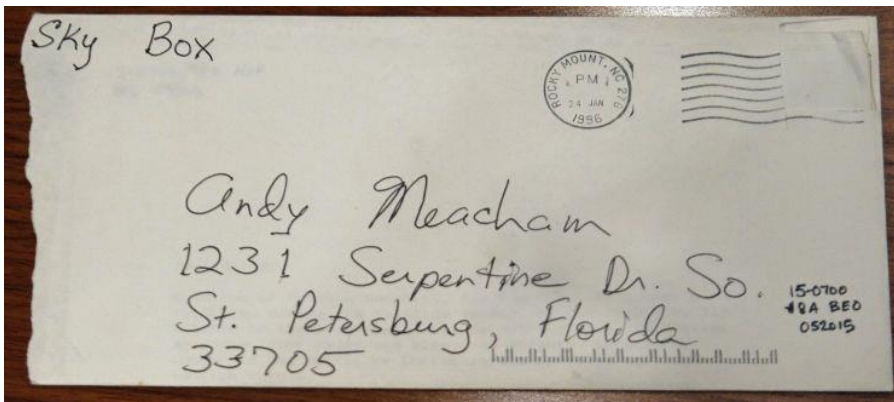 Sky Box
ROCKY MOUNT, NC 278
PM
24 JAN
1996
Andy Meacham
1231 Serpentine Dr. So.
St. Petersburg, Florida
33705
15-0700
#8A BEO
052015